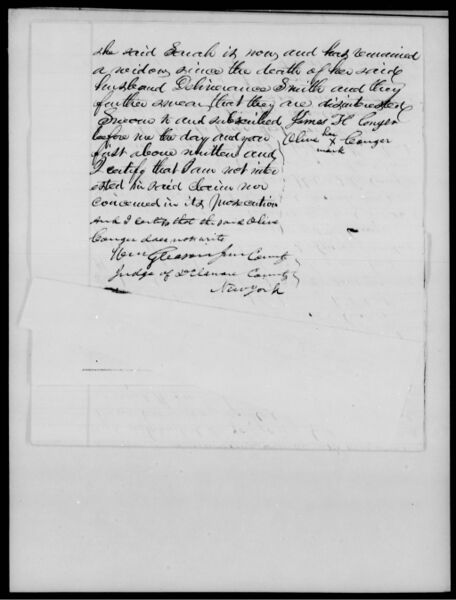 she said Sarah is now and has remained
a widow since the death of her said
husband Deliverance Smith and they
further swear that they are disinterested
Sworn to and subscribed James H Conger
before me the day and year Olive her X Conger
first above written and mark
I certify that I am not inter
ested in said Claim nor
concerned in its prosecution
And I certify that the said Olive
Conger does not write
Wm Gleason Jun County
Judge of Delaware County
New York